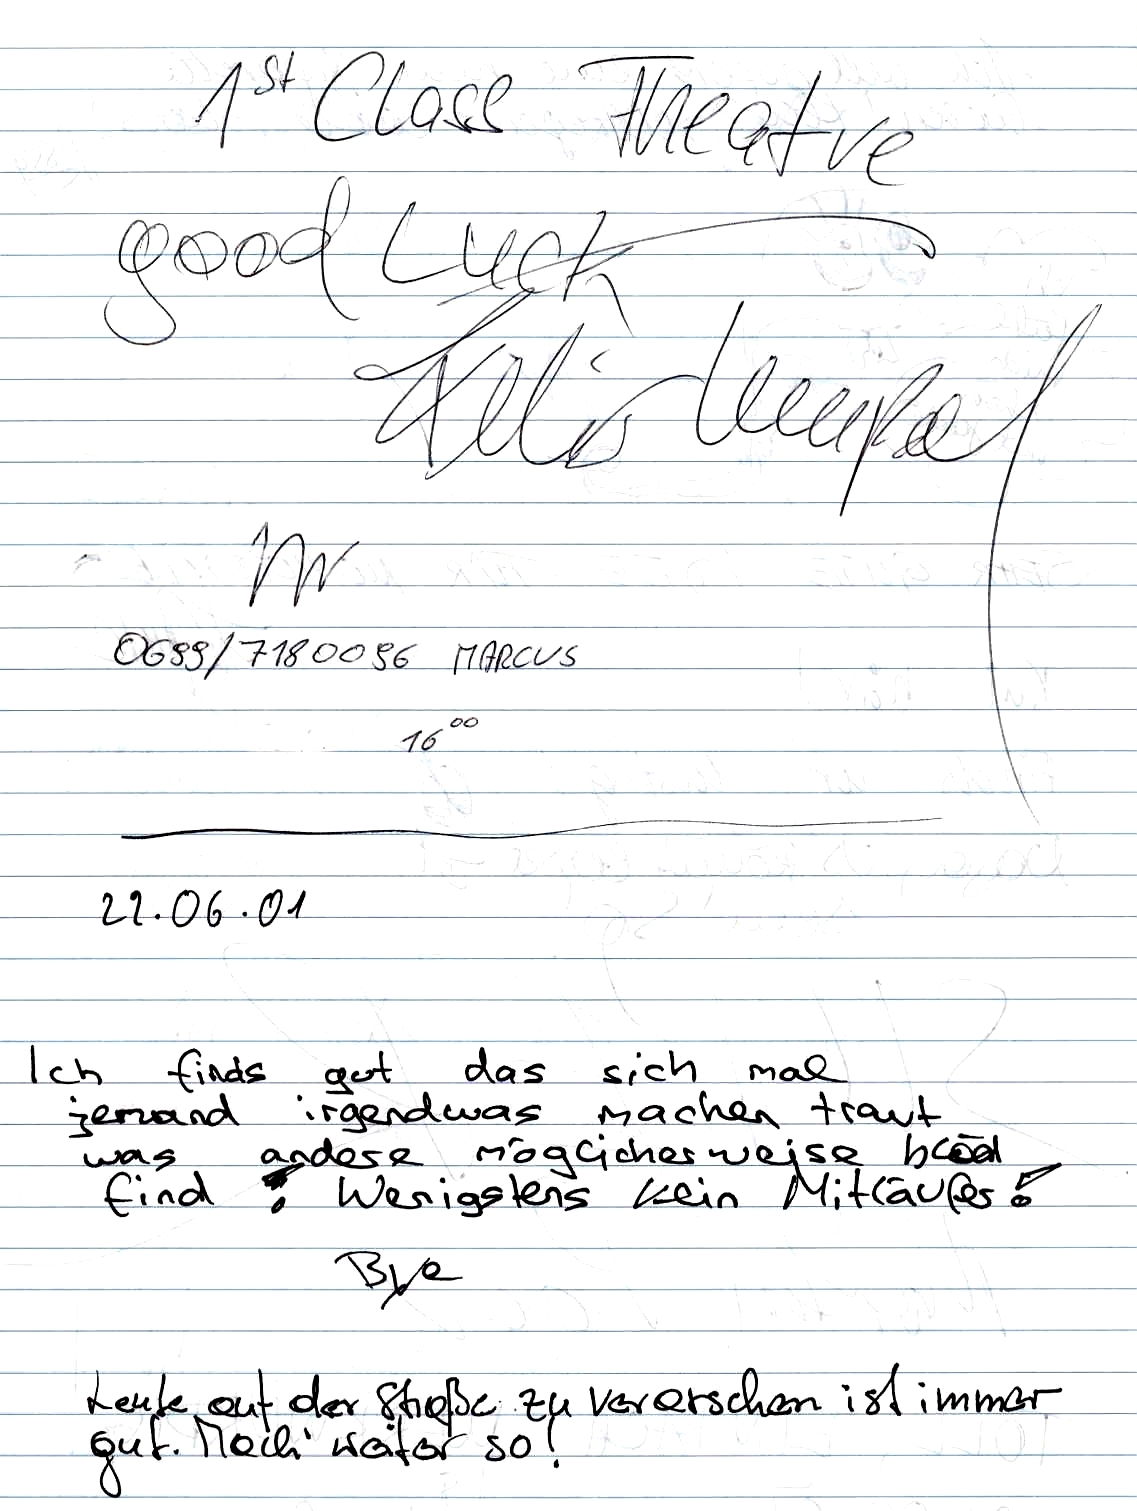 1st Class Theatre
good Luck
0699/7180096 MARCUS
16 00
22.06.01
Ich finds gut das sich mal
jemand irgendwas machen traut
was andere möglicherweise blöd
find! Wenigstens kein Mitläufer!
Bye
Leute auf der Straße zu verarschen ist immer
gut. Mach' weiter so!